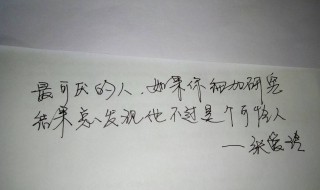 最可厌的人，如果你细加研究
结果总发现他不过是个可怜人
—张爱玲